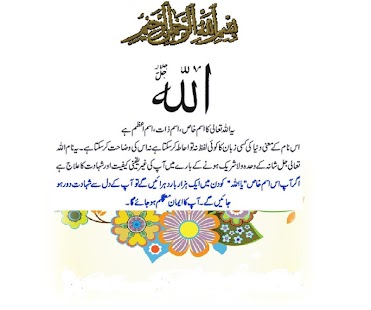 بسم الله الرحمن الرحيم
الله جل جلاله
یہ اللہ تعالی کا اسم خاص، اسم ذات، اسم اعظم ہے
اس نام کے معنی دنیا کی کسی زبان کا کوئی لفظ نہ تو احاطہ کر سکتا ہے نہ اس کی وضاحت کر سکتا ہے۔ یہ نام اللہ
تعالی جل شانہ کے وحدہ ولا شریک ہونے کے بارے میں آپ کی غیر یقینی کیفیت اور شبہات کا علاج ہے
اگر آپ اس اسم خاص "یا اللہ" کو دن میں ایک ہزار بار دہرائیں گے تو آپ کے دل سے شبہات دور ہو
جائیں گے۔ آپ کا ایمان مستحکم ہو جائے گا۔